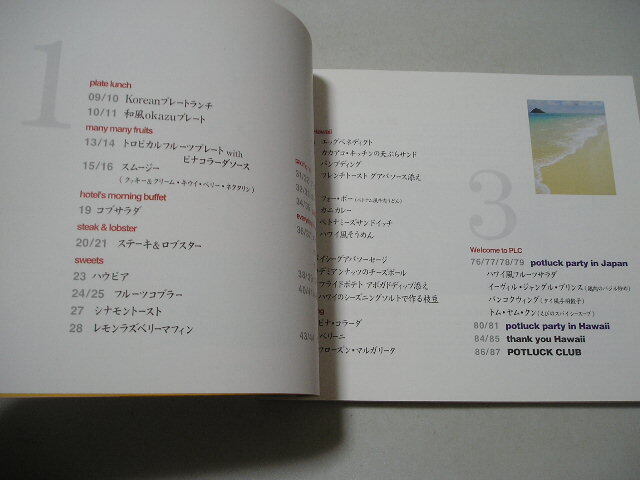 1
plate lunch
09/10 Koreanプレートランチ
10/11 和風okazuプレート
many many fruits
13/14 トロピカルフルーツプレート with
ピナコラーダソース
15/16 スムージー
(クッキー&クリーム・キウイ・ベリー・ネクタリン)
hotel's morning buffet
19 コブサラダ
steak & lobster
20/21 ステーキ&ロブスター
sweets
23 ハウピア
24/25 フルーツコブラー
27 シナモントースト
28 レモンラズベリーマフィン
Hawaii
エッグベネディクト
カカアコ・キッチンの天ぷらサンド
パンプディング
フレンチトースト グアバソース添え
フォー・ボー(ベトナム風牛肉うどん)
カニカレー
ベトナミーズサンドイッチ
ハワイ風そうめん
イシーグアバソーセージ
デミアンナッツのチーズボール
フライドポテト アボガドディップ添え
ハワイのシーズニングソルトで作る枝豆
ピナ・コラーダ
ベリーニ
フローズン・マルガリータ
3
Welcome to PLC
76/77/78/79 potluck party in Japan
ハワイ風フルーツサラダ
イーヴィル・ジャングル・プリンス(鶏肉のバジル炒め)
バンコクウィング(タイ風手羽餃子)
トム・ヤム・クン(えびのスパイシースープ)
80/81 potluck party in Hawaii
84/85 thank you Hawaii
86/87 POTLUCK CLUB